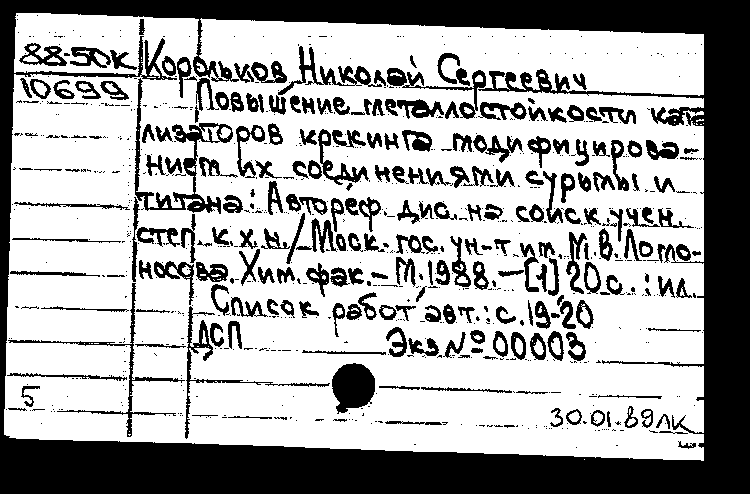 88-50К
10699
Корольков Николай Сергеевич
Повышение металлостойкости ката
лизаторов крекинга модифицирова-
нием их соединениями сурьмы и
титана: Автореф. дис. на соиск. учен.
степ. к. х. н. / Моск. гос. ун-т им. М. В. Ломо-
носова. Хим. фак. – М. 1988. – [1] 20 с. : ил.
Список работ авт.: с. 19-20
ДСП Экз № 00003
5
30.01.89 ЛК